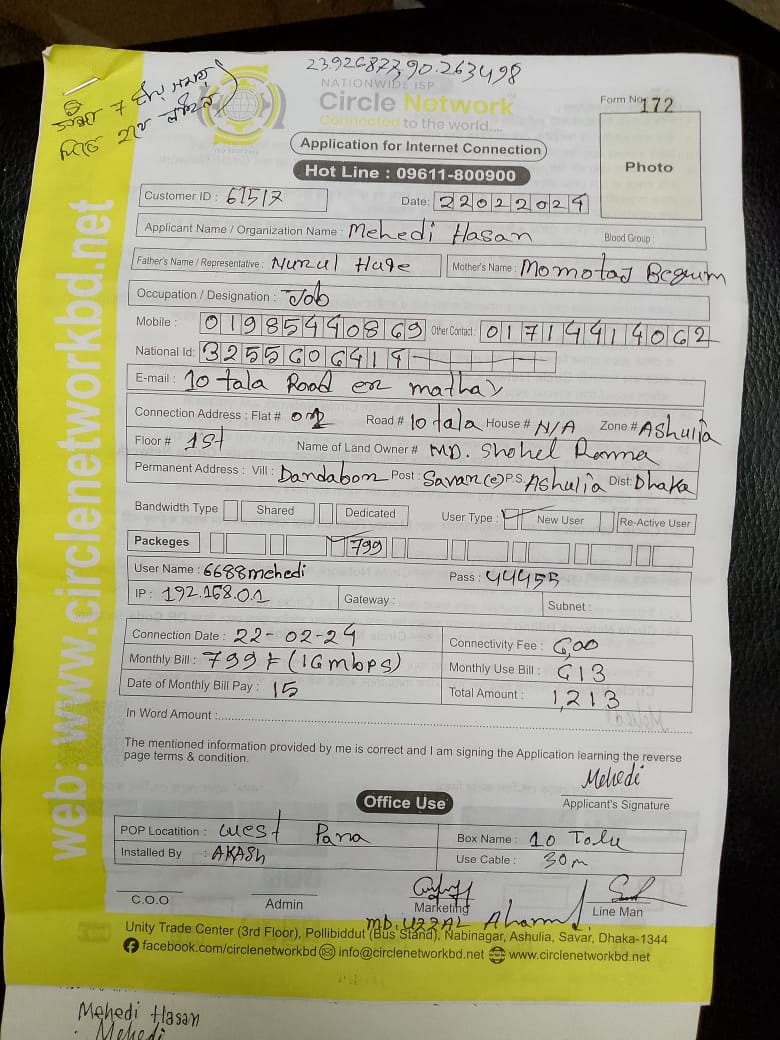 23.926877,90.263498
NATIONWIDE ISP
Circle Network
Connected to the world.....
Form No 172
Application for Internet Connection
Hot Line : 09611-800900
Photo
Customer ID : 61517
Date: 22022024
Applicant Name / Organization Name : Mehedi Hasan Blood Group
Father's Name / Representative : Nurul Huqe Mother's Name : Momotaj Begum
Occupation / Designation : Job
Mobile : 01985440869 Other Contact : 01714414062
National Id: 3255606414
E-mail : 10 tala Road er matha
Connection Address : Flat # Road # 10 tala House # N/A Zone # Ashulia
Floor # 1st Name of Land Owner # MD. Shohel Rana
Permanent Address : Vill : Dandabor Post : Savar (c) P.S: Ashulia Dist: Dhaka
Bandwidth Type Shared Dedicated User Type : New User Re-Active User
Packeges 799
User Name : 6688mehedi Pass : 44455
IP : 192.168.0.1 Gateway : Subnet :
Connection Date : 22-02-24 Connectivity Fee : 600
Monthly Bill : 799 (16mbps) Monthly Use Bill : 613
Date of Monthly Bill Pay : 15 Total Amount : 1,213
In Word Amount :
The mentioned information provided by me is correct and I am signing the Application learning the reverse
page terms & condition.
Mehedi
Applicant's Signature
Office Use
POP Locatition : west Para Box Name : 10 Tala
Installed By : AKASH Use Cable : 30m
C.O.O Admin Marketing Line Man
MD. UZZAL Ahamed
Unity Trade Center (3rd Floor), Pollibiddut (Bus Stand), Nabinagar, Ashulia, Savar, Dhaka-1344
facebook.com/circlenetworkbd info@circlenetworkbd.net www.circlenetworkbd.net
web: www.circlenetworkbd.net
Mehedi Hasan
Mehedi